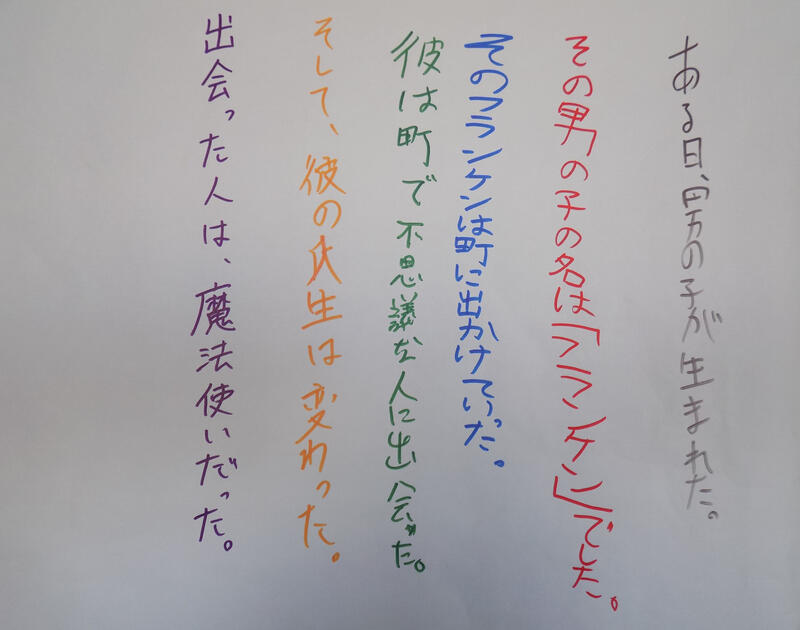 ある日、男の子が生まれた。
その男の子の名は「フランケン」でした。
そのフランケンは町に出かけていった。
彼は町で不思議な人に出会った。
そして、彼の氏生は変わった。
出会った人は、魔法使いだった。